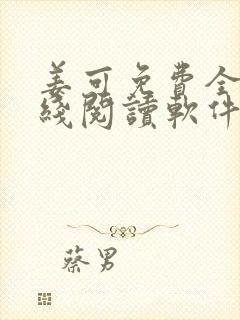 姜可免費全
綫閱讀軟件
蔡男